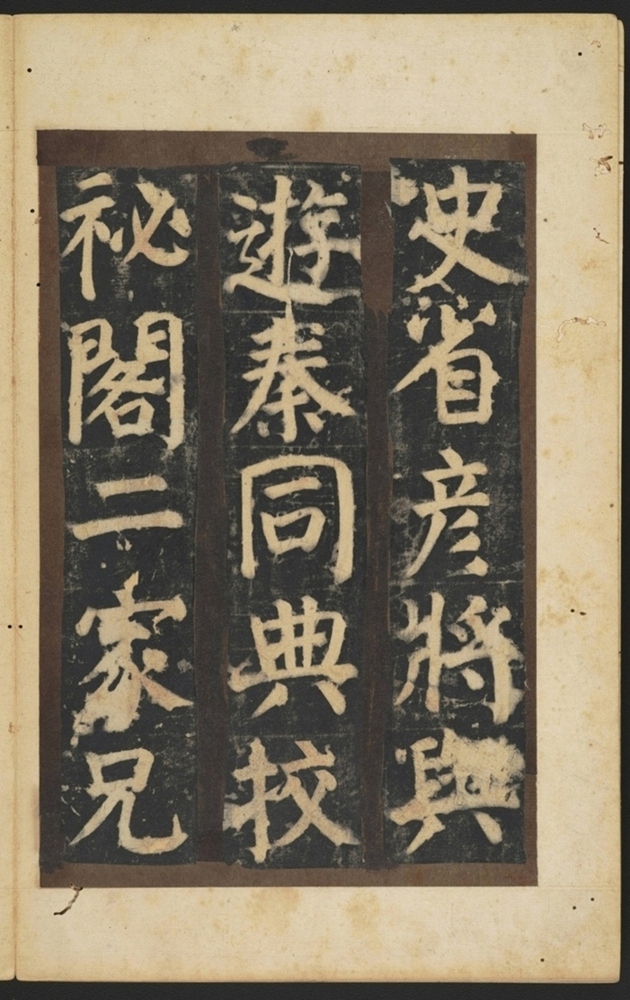 史省彦將與
遊秦同典校
祕閣二家兄